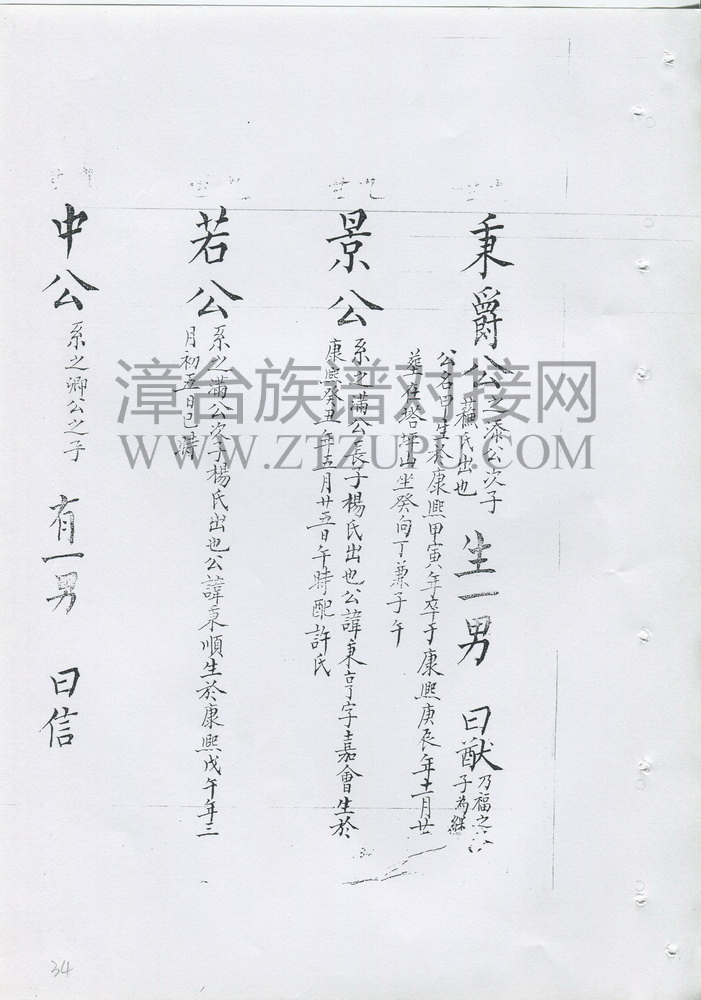 秉爵公 之添公次子 生一男 曰猷 乃福之公
蘇氏出也 子為繼
公名甲生於康熙甲寅年卒于康熙庚辰年十一月廿
葬在塔坪山坐癸向丁兼子午
景公
系之滿公長子楊氏出也公諱秉亨字嘉會生於
康熙癸丑年五月廿五日午時配許氏
若公
系之滿公次子楊氏出也公諱秉順生於康熙戊午年三
月初五日巳時
中公 系之卿公之子 有一男 曰信
漳台族谱对接网
WWW.ZTZUPU.COM
34